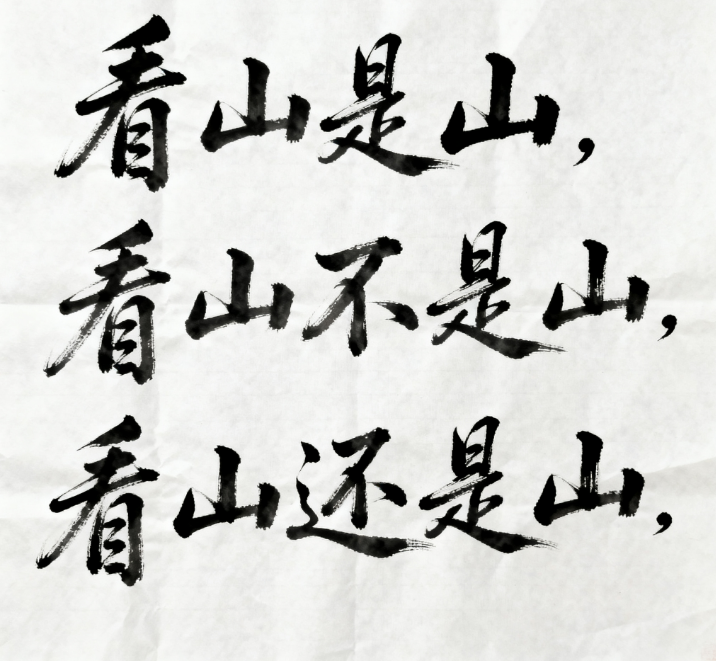 看山是山，
看山不是山，
看山还是山，